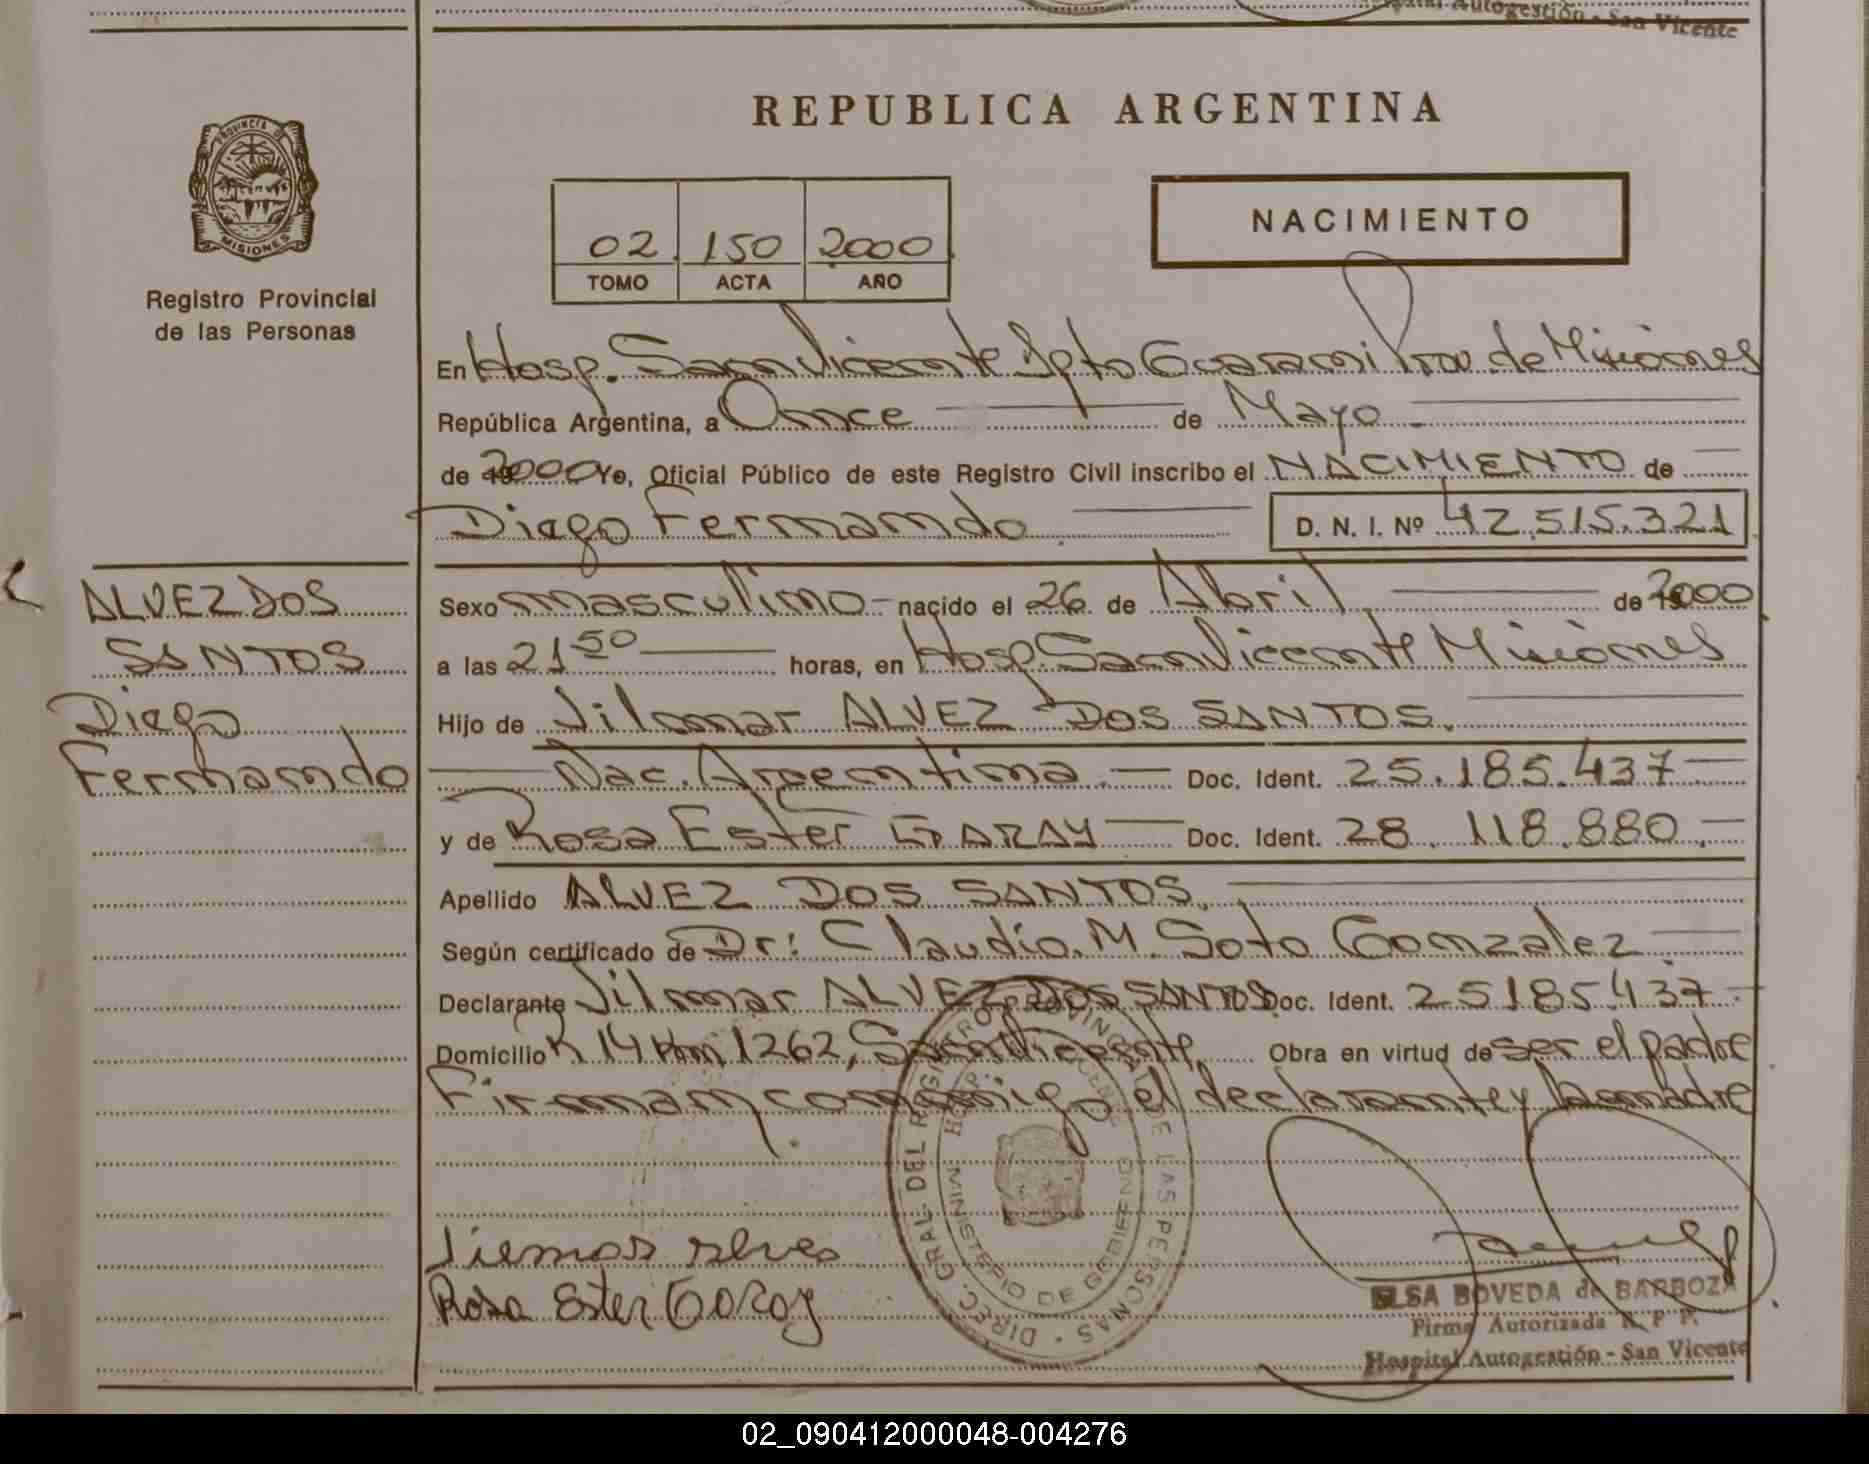 Hospital Autogestión - San Vicente
REPUBLICA ARGENTINA
PROVINCIA DE
MISIONES
NACIMIENTO
02 150 2000
TOMO ACTA AÑO
Registro Provincial
de las Personas
En Hosp. San Vicente Dpto Guarani Prov de Misiones
República Argentina, a Once de Mayo
de 2000 Yo, Oficial Público de este Registro Civil inscribo el NACIMIENTO de
Diego Fernando D. N. I. Nº 42.515.321
ALVEZ DOS
SANTOS
Diego
Fernando
Sexo masculino nacido el 26 de Abril de 2000
a las 21 50 horas, en Hosp. San Vicente Misiones
Hijo de Vilmar ALVEZ DOS SANTOS.
Nac. Argentina. Doc. Ident. 25.185.437
y de Rosa Ester GARAY Doc. Ident. 28.118.880.
Apellido ALVEZ DOS SANTOS.
Según certificado de Dr: Claudio M. Soto Gonzalez
Declarante Vilmar ALVEZ DOS SANTOS Doc. Ident. 25185.437
Domicilio R 14 Km 1262, San Vicente Obra en virtud de ser el padre
Firman conmigo el declarante y la madre
DIREC. GRAL. DEL REGISTRO PROVINCIAL DE LAS PERSONAS
MINISTERIO DE GOBIERNO
Rosa Ester Garay
ELSA BOVEDA de BARBOZA
Firma Autorizada R. P. P.
Hospital Autogestión - San Vicente
02_090412000048-004276